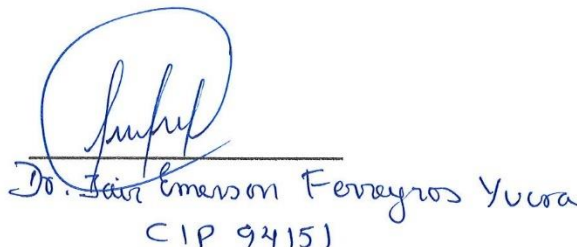 Dr. Jair Emerson Ferreyros Yucra
CIP 94151